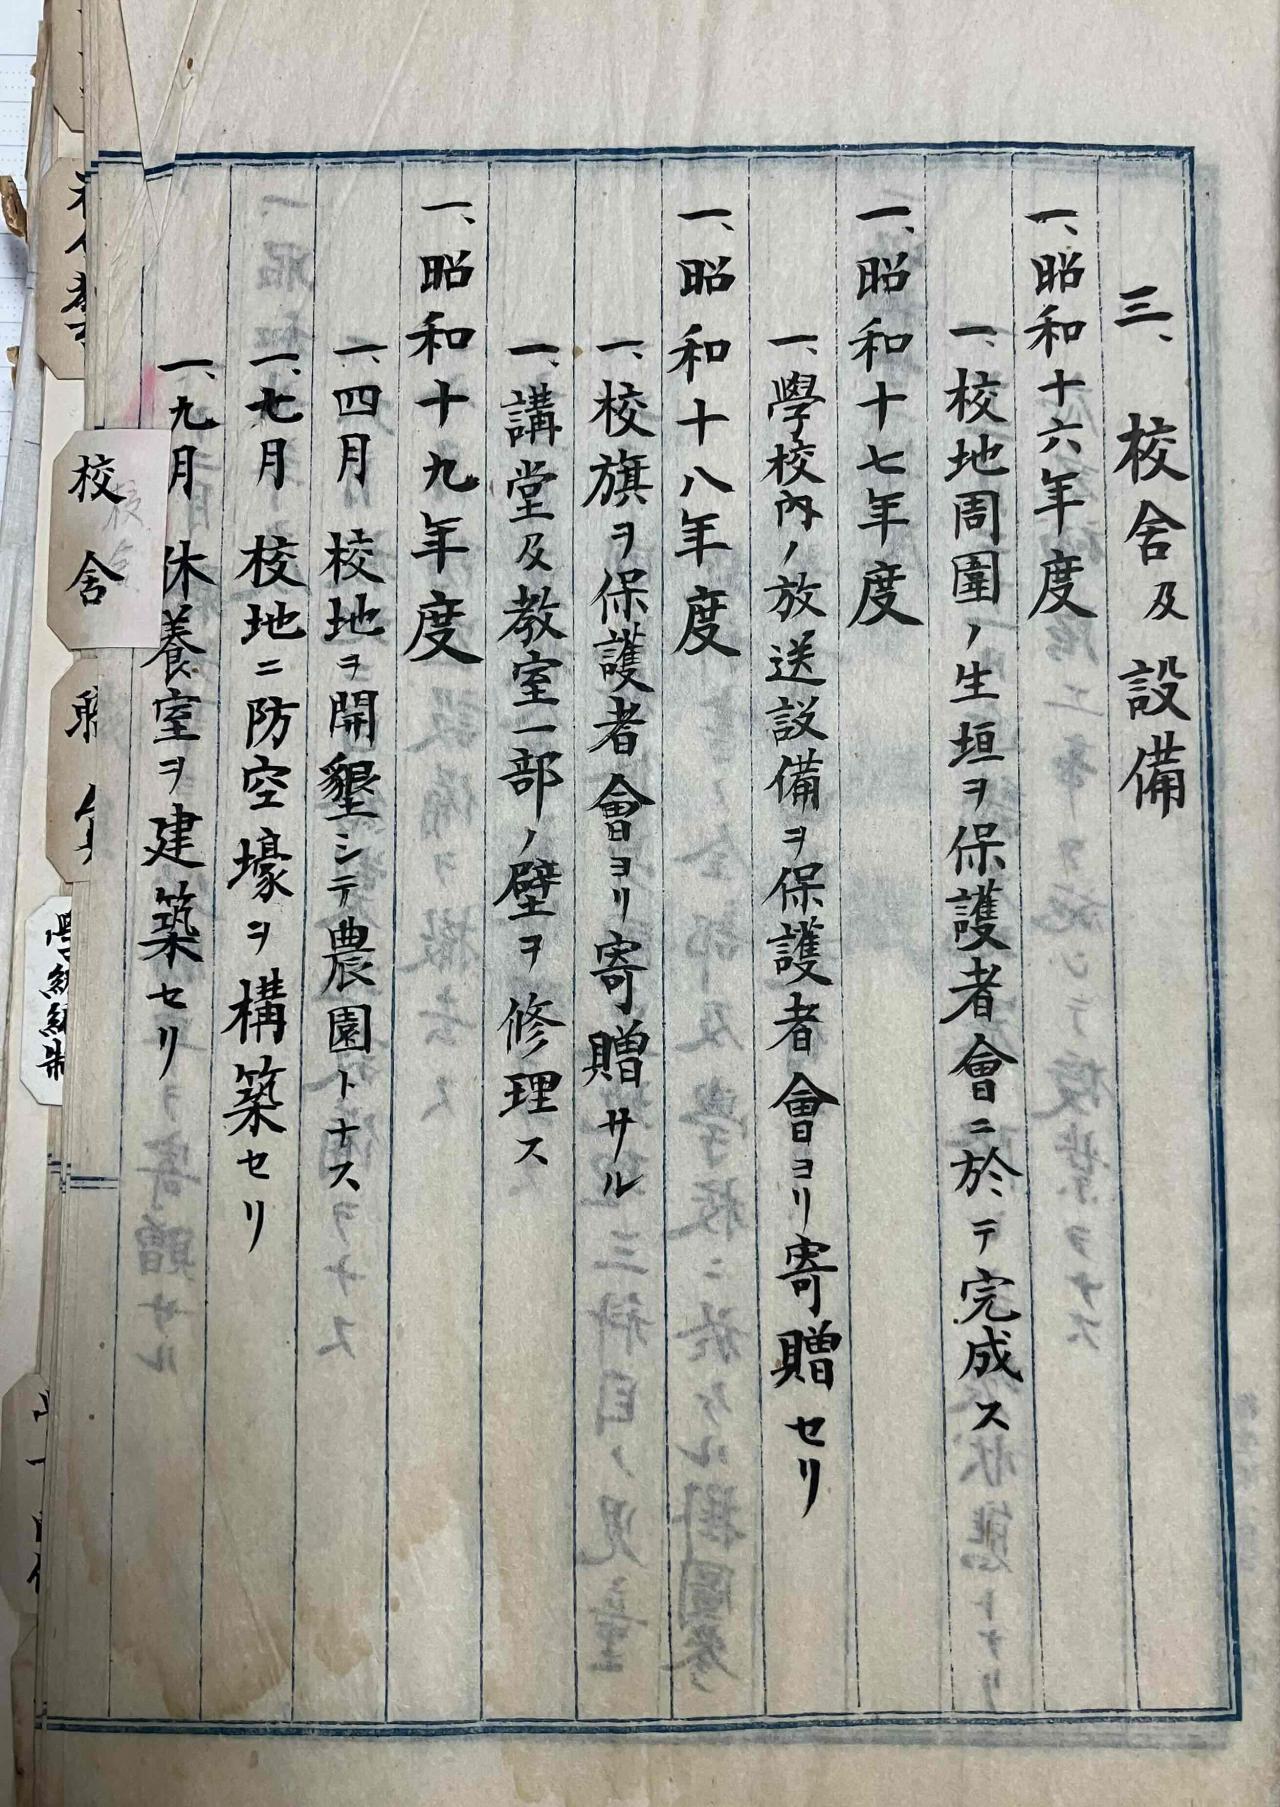 三、校舍及設備
一、昭和十六年度
一、校地周圍ノ生垣ヲ保護者會ニ於テ完成ス
一、昭和十七年度
一、學校內ノ放送設備ヲ保護者會ヨリ寄贈セリ
一、昭和十八年度
一、校旗ヲ保護者會ヨリ寄贈サル
一、講堂及教室一部ノ壁ヲ修理ス
一、昭和十九年度
一、四月校地ヲ開墾シテ農園トナス
一、七月校地ニ防空壕ヲ構築セリ
一、九月休養室ヲ建築セリ
校舍
學級編制